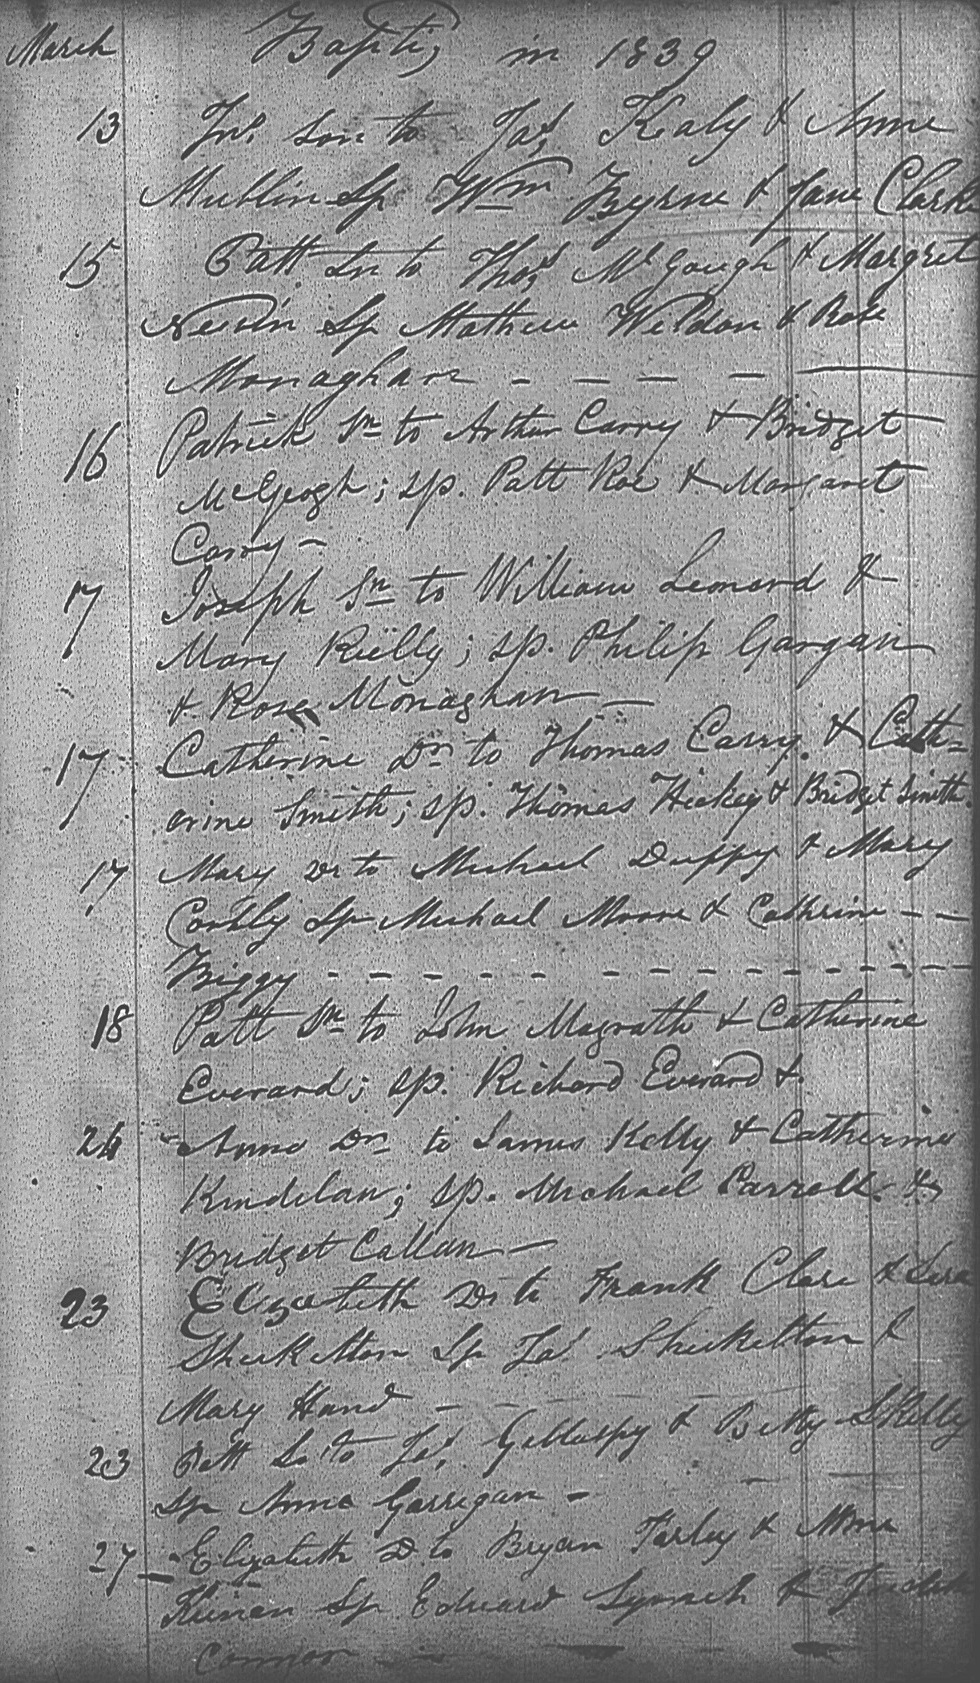 March Baptis, in 1839
13 Jno son to Jas, Kealy & Anne
Mullin Sp Wm Byrne & Jane Clark
15 Patt Sn to Thos, McGough & Margret
Nevin Sp Mathew Weldon & Rose
Monaghan - - - -
16 Patrick Sn to Arthur Carry & Bridget
McGeogh; sp. Patt Roe & Margaret
Carry -
17 Joseph Sn to William Leonard &
Mary Rielly; sp. Philip Gargan
& Rose Monaghan -
17 Catherine Dr to Thomas Carry. & Cath=
erine Smith; sp. Thomas Hickey & Bridget Smith
17 Mary Dr to Michael Duffy & Mary
Sp Michael Moore & Cathrine - -
Biggy - - - - - - - - - - - - - -
18 Patt Sn to John Magrath & Catherine
Everard; sp. Richard Everard &.
24 Anne Dr to James Kelly & Catherine
Kindelan; sp. Michael Carroll &
Bridget Callan -
23 Elizabeth Dr to Frank Clare &
Shekelton Sp Jas Shekelton &
Mary Hand - - - -
23 Patt So to Js, Gillaspy & Betty Skelly
Sp Anne Garrigan -
27 - Elizabeth D to Bryan Farley &
Kiernan Sp Edward Lynch &
Connor - -